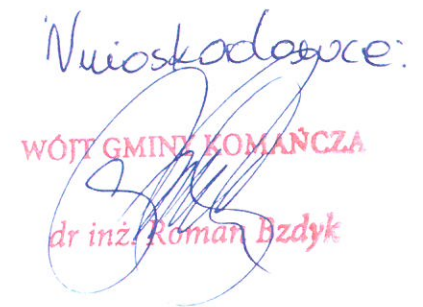 Wnioskodawca:
WÓJT GMINY KOMAŃCZA
dr inż. Roman Bzdyk